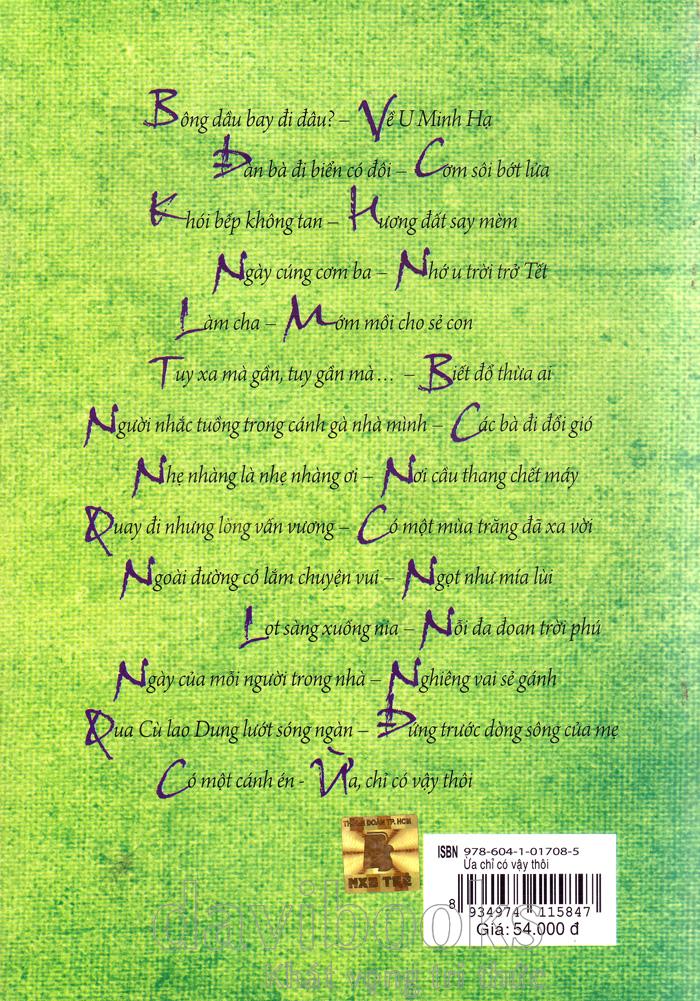 Bông dầu bay đi đâu? – Về U Minh Hạ
Đàn bà đi biển có đôi – Cơm sôi bớt lửa
Khói bếp không tan – Hương đất say mèm
Ngày cúng cơm ba – Nhớ u trời trở Tết
Làm cha – Mớm mồi cho sẻ con
Tuy xa mà gần, tuy gần mà... – Biết đổ thừa ai
Người nhắc tuồng trong cánh gà nhà mình – Các bà đi đổi gió
Nhẹ nhàng là nhẹ nhàng ơi – Nơi cầu thang chết máy
Quay đi nhưng lòng vấn vương – Có một mùa trăng đã xa vời
Ngoài đường có lắm chuyện vui – Ngọt như mía lùi
Lọt sàng xuống nia – Nỗi đa đoan trời phú
Ngày của mỗi người trong nhà – Nghiêng vai sẻ gánh
Qua Cù lao Dung lướt sóng ngàn – Đứng trước dòng sông của mẹ
Có một cánh én - Ừa, chỉ có vậy thôi
THÀNH ĐOÀN TP. HCM
NXB TRẺ
ISBN 978-604-1-01708-5
Ừa chỉ có vậy thôi
8 934974 115847
Giá: 54.000 đ
davibooks
Khát vọng tri thức